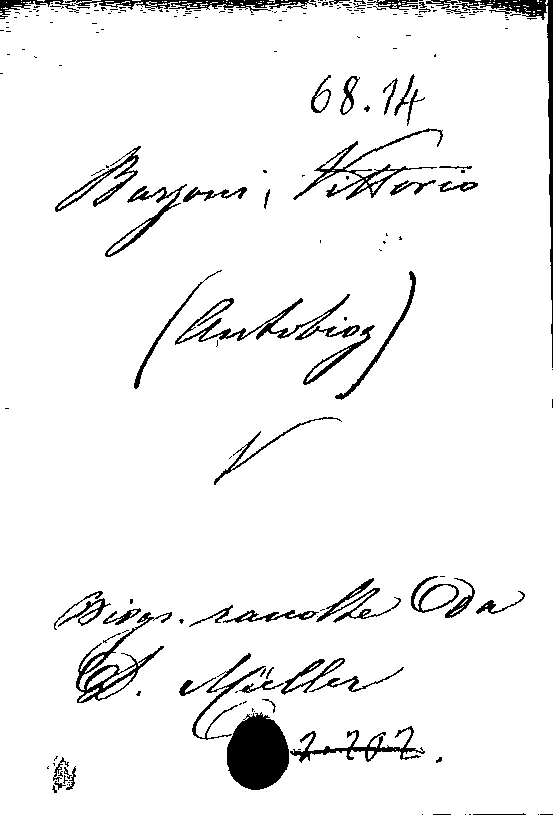 68.14
Barzoni, Vittorio
(Autobiog)
V
Biogr. raccolte Da
D. Müller
2.202.